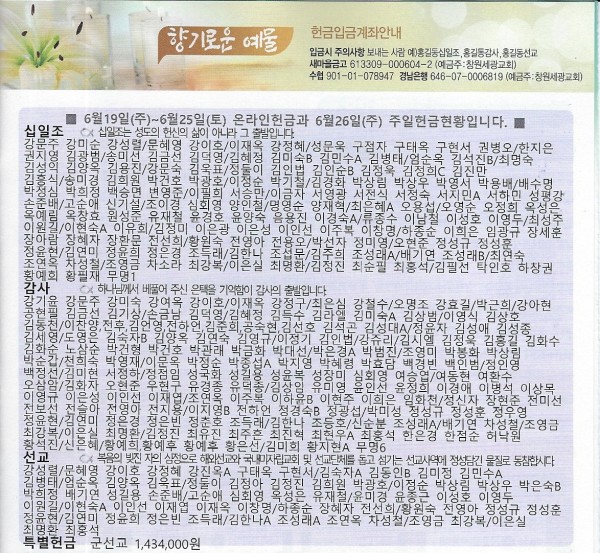 향기로운 예물
헌금입금계좌안내
입금시 주의사항 보내는 사람 예)홍길동십일조, 홍길동감사, 홍길동선교
새마을금고 613309-000604-2 (예금주: 창원세광교회)
수협 901-01-078947 경남은행 646-07-0006819 (예금주: 창원세광교회)
■ 6월19일(주)~6월25일(토) 온라인헌금과 6월26일(주) 주일헌금현황입니다. ■
십일조 십일조는 성도의 헌신의 삶이 아니라 그 출발입니다.
강문주 강미순 강성렬/문혜영 강이호/이재옥 강정혜/성문욱 구점자 구태옥 구현서 권병오/한지은
권지영 김광범/송미선 김금선 김덕영/김혜정 김미숙B 김민수A 김병태/엄순옥 김석진B/최명숙
김성호 김양옥 김용진/강문숙 김옥표/정둘이 김인법 김인순B 김정욱 김정희C 김진만
김태식/송미경 김희원 박연호 박광호/이정순 박기철/김경화 박상림 박상우 박영서 박용배/배수명
박정심 박희정 백승면 변영준/이필순 서미숙 서영광 서정선 서정숙 서지민A 서하민 성평강
손준배/고순애 신기설/조이경 심회영 양인철/명영순 양재혁/최은혜A 오용섭/오영순 오정희 옥성은
옥예림 옥창효 원성준 유재철 윤경호 윤양숙 음용진 이경숙A/류종수 이남철 이성호 이영두/최성주
이원길/이현숙A 이유희/김정미 이은광 이은성 이인선 이주복 이창명/하종순 이희은 임광규 장세훈
장아람 장혜자 장환문 전선희/황원숙 전영아 전용오/박선자 정미영/오현준 정성규 정성훈
정윤현/김연미 정윤희 정은경 조득래/김한나 조섭문/김주희 조성래A/배기연 조성래B/최연숙
조연옥 차성철/조영금 차소라 최강복/이은실 최명환/김정진 최순필 최홍석/김필선 탁인호 하창권
황예희 황필재 무명1
감사 하나님께서 베풀어 주신 은택을 기억함이 감사의 출발입니다.
강기윤 강문주 강미숙 강여옥 강이호/이재옥 강정구/최은심 강철수/오명조 강효길/박근희/강아현
공현필 김금선 김기상/손금남 김덕영/김혜정 김득수 김라엘 김미숙A 김상범/이영식 김상호
김동전/이찬양,전후,김언영,전하언,김준희,공숙현,김선호 김석곤 김성대A/정윤자 김성애 김성종
김세영/도영은 김숙자B 김양옥 김연숙 김영규/이정기 김인법/강쥬리/김시엘 김정욱 김홍길 김화수
김화순 노삼순 박건형 박건호 박관래 박금화 박대선/박은경A 박범진/조영미 박봉화 박상림
박순남/천희숙 박영재/이문자 박정순 박종섭A 박지영 박혜령 박효담 백경빈 백인범/정인영
백정선/김미현 서정하/정정임 서희용 성윤복 성창미 심회영 여승엽/여동현 여환수
오삼암/김화자 오현준 우현구 유경종 유덕종 윤우임 유미영 윤인선 윤정희 이경애 이명석 이상목
이영규 이은성 이인선 이재엽/조연옥 이주복 이하윤B 이현주 이희은 임화천/정신자 장현준 전미선
전보선 전슬아 전영아 전지용/이지영B 전하언 정경숙B 정광섭/박미성 정성규 정성훈 정우영
정윤현/김연미 정은경 정은빈 정춘호 조득래/김한나 조등호/신순분 조성래A/배기연 차성철/조영금
최강복/이은실 최명환/김정진 최유진 최주흔 최진혁 최현우A 최홍석 한은경 한점순 허낙원
황삼식/신은혜/황예희 황예후 황은선/김미희 황지현A 무명6
선교 복음의 빚진 자의 심정으로 해외선교와 국내미자립교회 및 선교단체를 돕고 섬기는 선교사역에 정성담긴 물질로 동참합시다.
강성렬/문혜영 강이호 강정혜 강진옥A 구태옥 구현서/김숙자A 김동인B 김미정 김민수A
김병태/엄순옥 김양옥 김옥표/정둘이 김정아 김정진 김희원 박광호/이정순 박상림 박상우 박은숙B
박희정 배기연 성길용 손준배/고순애 심회영 옥성은 유재철/윤미경 윤춘근 이성호 이영두
이원길/이현숙A 이인선 이재엽 이재옥 이창명/하종순 장혜자 전선희/황원숙 전영아 정성규 정성훈
정윤현/김연미 정윤희 정은빈 조득래/김한나A 조성래A 조연옥 차성철/조영금 최강복/이은실
최명환 최홍석
특별헌금 군선교 1,434,000원